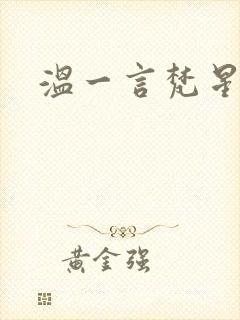 温一言梵星
黄金强